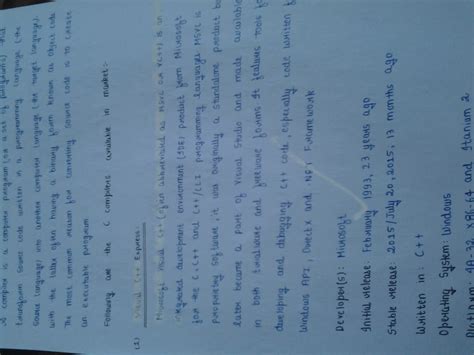 A compiler is a computer program (or a set of programs) that
transforms source code written in a programming language (the
source language) into another computer language (the target language),
with the latter often having a binary form known as object code
The most common reason for converting source code is to create
an executable program.
Following are the C compilers available in market:-
(1) Visual C++ Express:-
Microsoft Visual C++ (often abbreviated as MSVC or VC++) is an
integrated development environment (IDE) product from Microsoft
for the C, C++ and C++/CLI programming languages MSVC is
proprietary software; it was originally a standalone product but
later became a part of Visual Studio and made available
in both trialware and freeware forms. It features tools for
developing and debugging C++ code, especially code written for
Windows API, DirectX and .NET Framework
Developer(s): Microsoft
Initial release: February 1993, 23 years ago
Stable release: 2015/July 20, 2015, 13 months ago
Written in: C++
Operating System: Windows
Platform: IA-32, x86-64 and Itanium 2